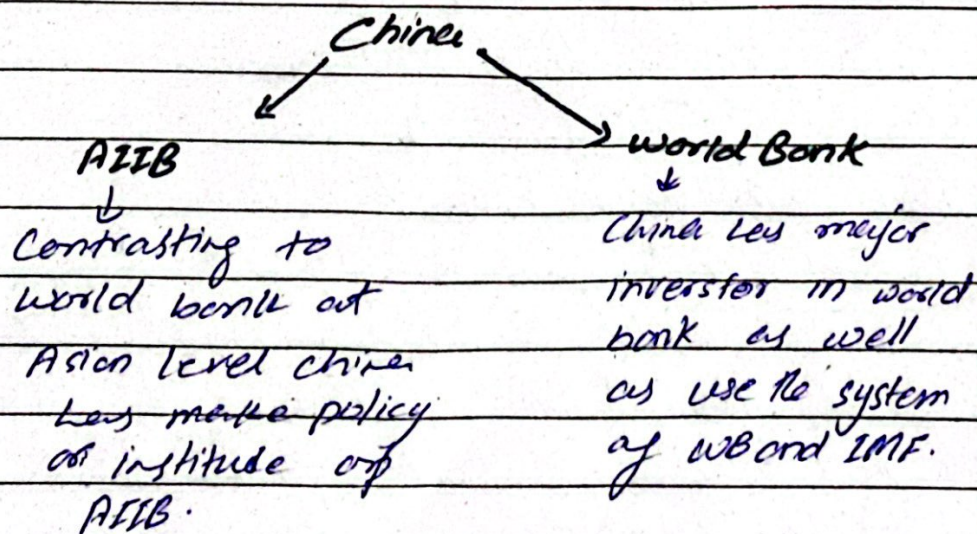 China
AIIB
World Bank
Contrasting to
world bank at
Asian level china
has make policy
or institute of
AIIB.
China has major
inverster in world
bank as well
as use the system
of WB and IMF.